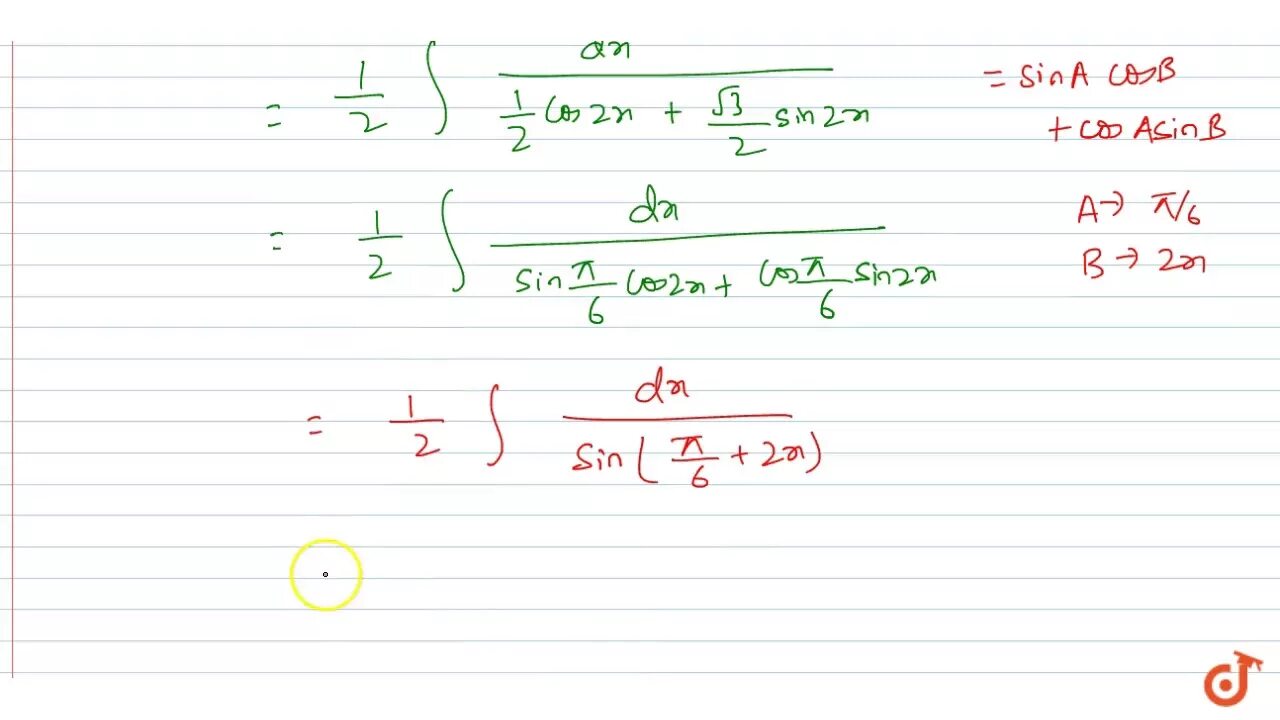 = 1/2 ∫ dx / (1/2 cos 2x + √3/2 sin 2x)
= sin A cos B
+ cos A sin B
= 1/2 ∫ dx / (sin π/6 cos 2x + cos π/6 sin 2x)
A → π/6
B → 2x
= 1/2 ∫ dx / sin(π/6 + 2x)